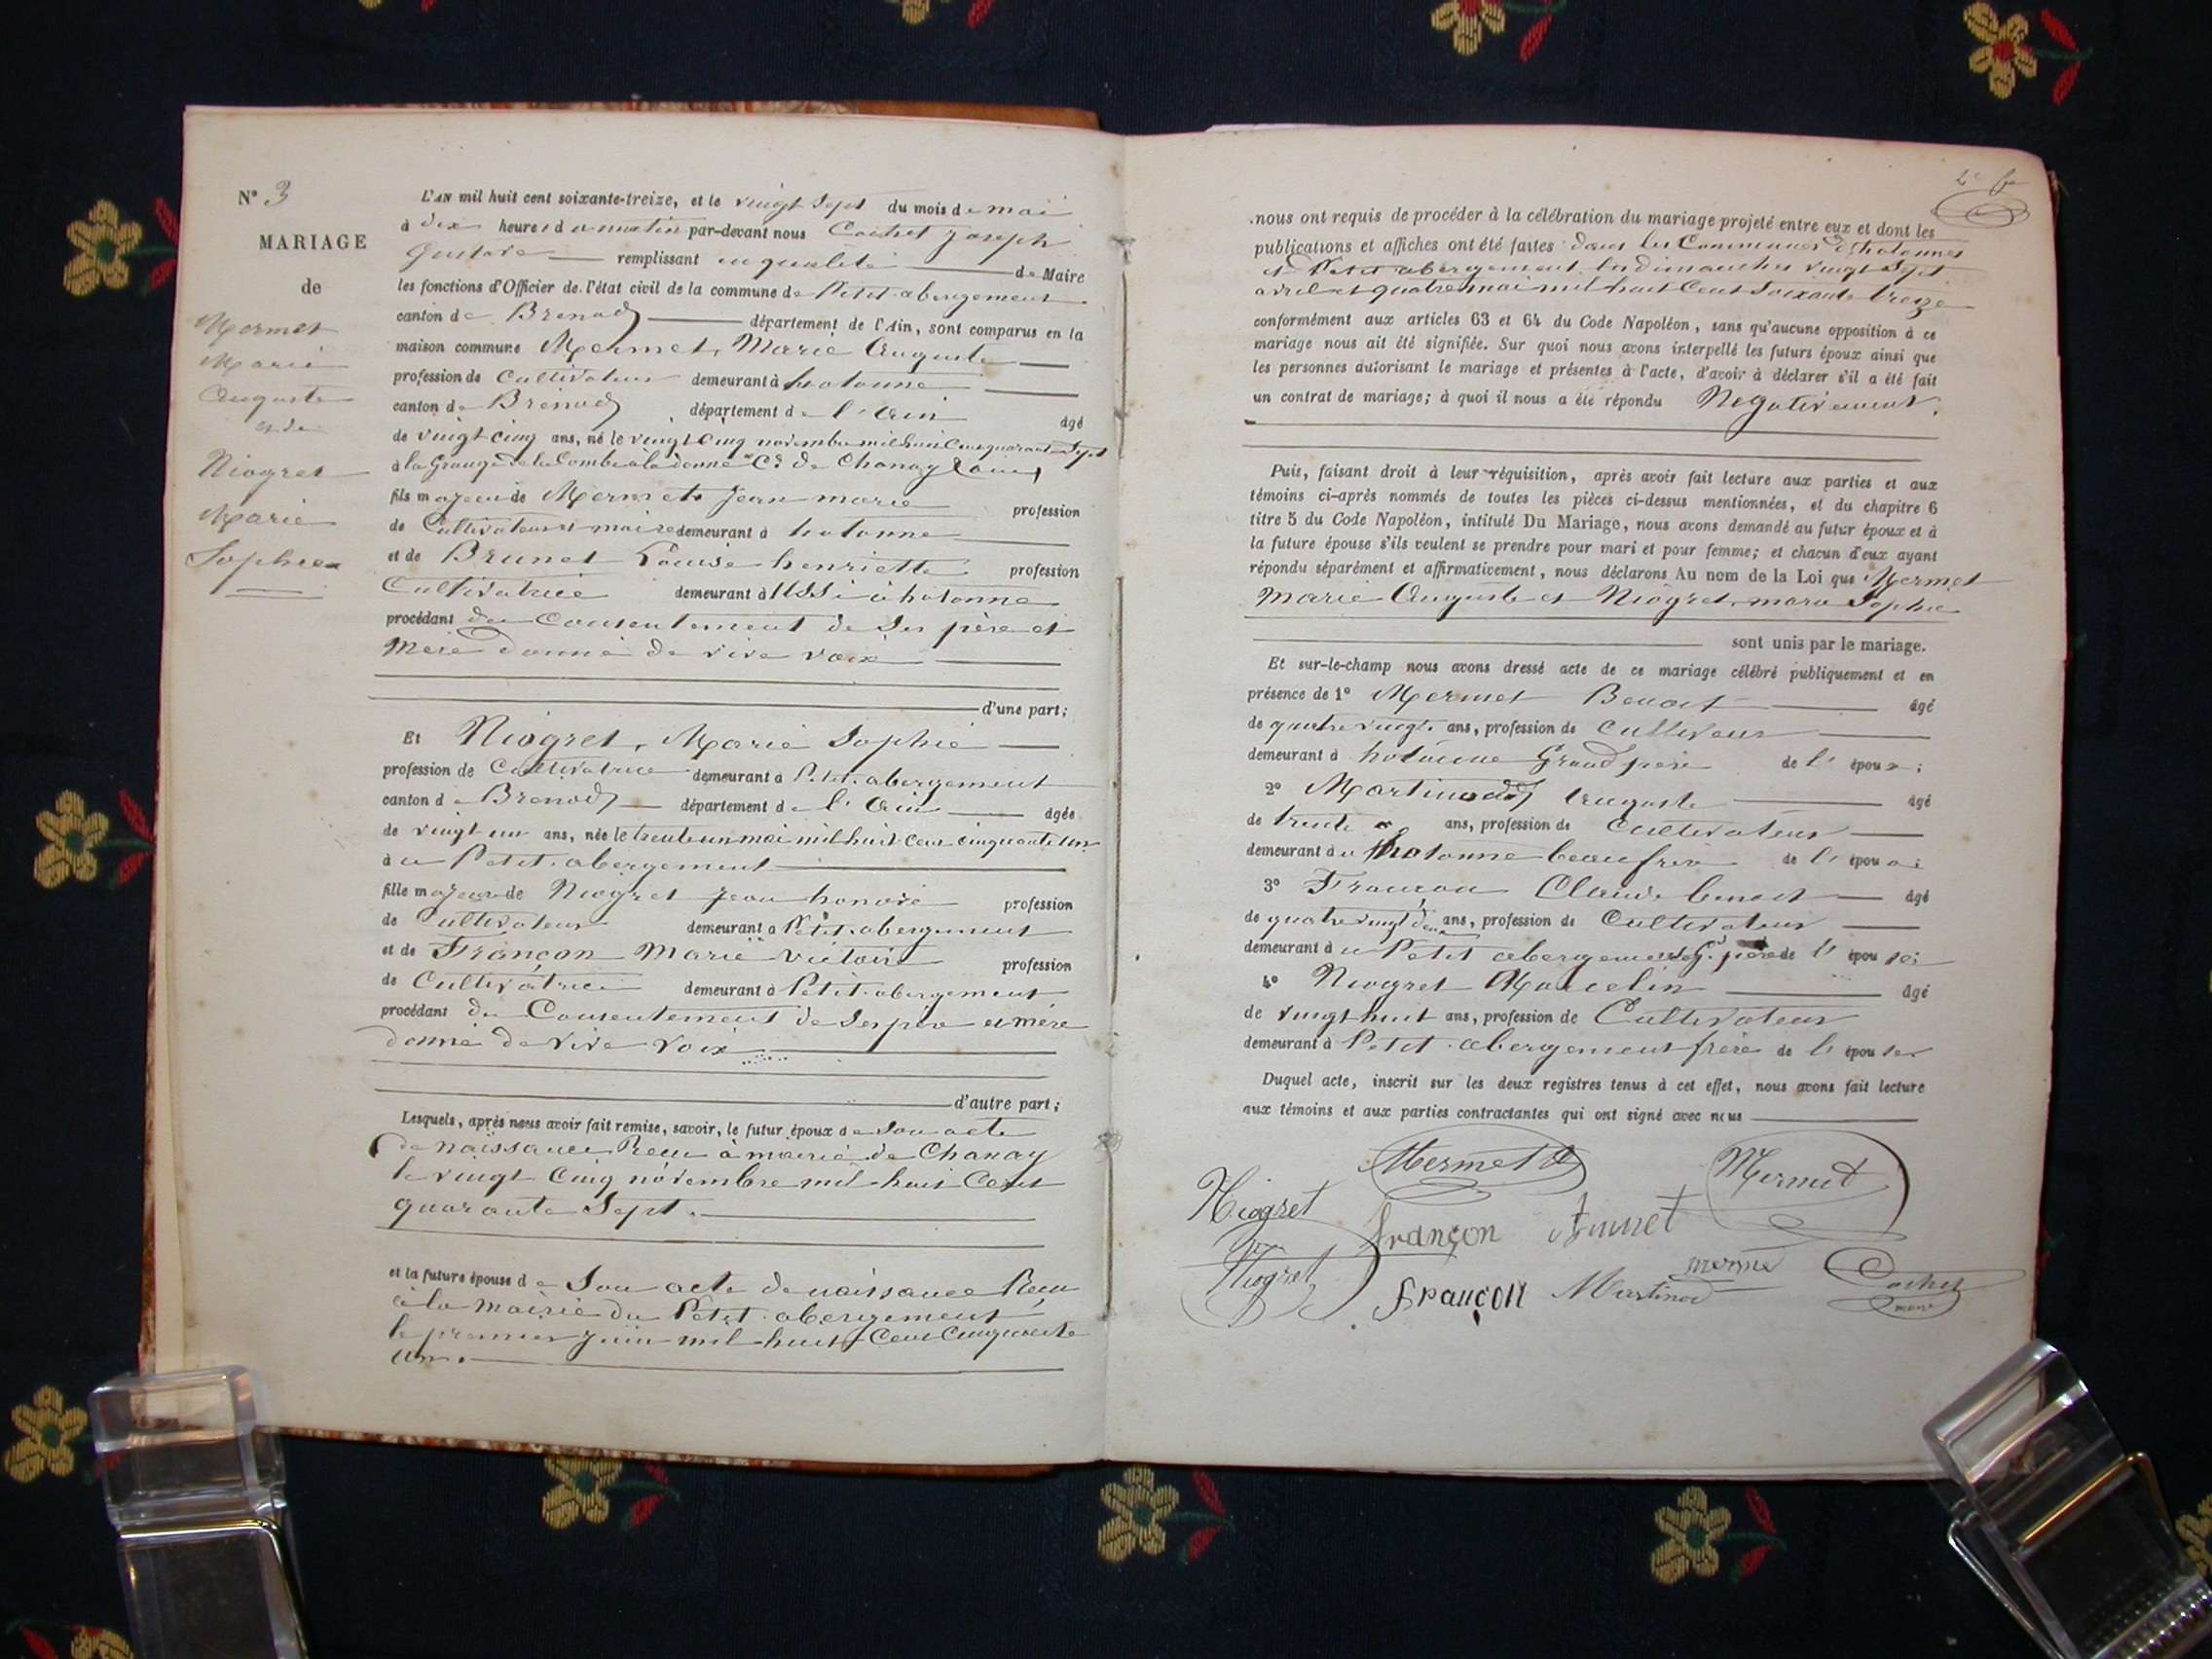 N° 3
MARIAGE
de
Mermet
Marie
Auguste
et de
Niogret
Marie
Sophie
L'AN mil huit cent soixante-treize, et le vingt Sept du mois de mai
à dix heures du matin par-devant nous Cochet Joseph
Gustave remplissant en qualité de Maire
les fonctions d'Officier de l'état civil de la commune de Petit-abergement
canton de Brenod département de l'Ain, sont comparus en la
maison commune Mermet, Marie Auguste
profession de Cultivateur demeurant à hotonne
canton de Brenod département de l'Ain âgé
de vingt cinq ans, né le vingt cinq novembre mil huit cent quarante Sept
à la Grange de la Combe C. de Chanay
fils majeur de Mermet Jean marie profession
de Cultivateur et maire demeurant à hotonne
et de Brunet Louise henriette profession
Cultivatrice demeurant à Ussi à hotonne
procédant du Consentement de Ses père et
Mère donné de vive voix
d'une part;
Et Niogret, Marie Sophie
profession de Cultivatrice demeurant à Petit-abergement
canton de Brenod département de l'Ain âgée
de vingt un ans, née le trente un mai mil huit cent cinquante un
à u Petit-abergement
fille majeure de Niogret Jean honoré profession
de Cultivateur demeurant à Petit-abergement
et de Françon Marie Victoire profession
de Cultivatrice demeurant à Petit-abergement
procédant du Consentement de Ses père et mère
donné de vive voix
d'autre part;
Lesquels, après nous avoir fait remise, savoir, le futur époux de Son acte
de naissance Reçu à mairie de Chanay
le vingt Cinq novembre mil huit Cent
quarante Sept.
et la future épouse de Son acte de naissance Reçu
à la mairie du Petit-abergement
le premier juin mil huit Cent Cinquante
un.
nous ont requis de procéder à la célébration du mariage projeté entre eux et dont les
publications et affiches ont été faites dans les Communes d'hotonnes
et Petit abergement les dimanches vingt Sept
avril et quatre mai mil huit Cent Soixante treize
conformément aux articles 63 et 64 du Code Napoléon, sans qu'aucune opposition à ce
mariage nous ait été signifiée. Sur quoi nous avons interpellé les futurs époux ainsi que
les personnes autorisant le mariage et présentes à l'acte, d'avoir à déclarer s'il a été fait
un contrat de mariage; à quoi il nous a été répondu Negativement.
Puis, faisant droit à leur réquisition, après avoir fait lecture aux parties et aux
témoins ci-après nommés de toutes les pièces ci-dessus mentionnées, et du chapitre 6
titre 5 du Code Napoléon, intitulé Du Mariage, nous avons demandé au futur époux et à
la future épouse s'ils veulent se prendre pour mari et pour femme; et chacun d'eux ayant
répondu séparément et affirmativement, nous déclarons Au nom de la Loi que Mermet
Marie Auguste et Niogret marie Sophie
sont unis par le mariage.
Et sur-le-champ nous avons dressé acte de ce mariage célébré publiquement et en
présence de 1° Mermet Benoit âgé
de quatre vingts ans, profession de Cultivateur
demeurant à hotonne Grand père de l' époux;
2° Martinod Auguste âgé
de trente ans, profession de Cultivateur
demeurant à hotonne beau frère de l' époux
3° Françon Claude benoit âgé
de quatre vingt deux ans, profession de Cultivateur
demeurant à u Petit abergement Gd. père de l' épouse;
4° Niogret Marcelin âgé
de vingt huit ans, profession de Cultivateur
demeurant à Petit-abergement frère de l' épouse
Duquel acte, inscrit sur les deux registres tenus à cet effet, nous avons fait lecture
aux témoins et aux parties contractantes qui ont signé avec nous
Mermet Mermet
Niogret
françon Brunet
Niogret
françon Martinod mermet Cochet
maire